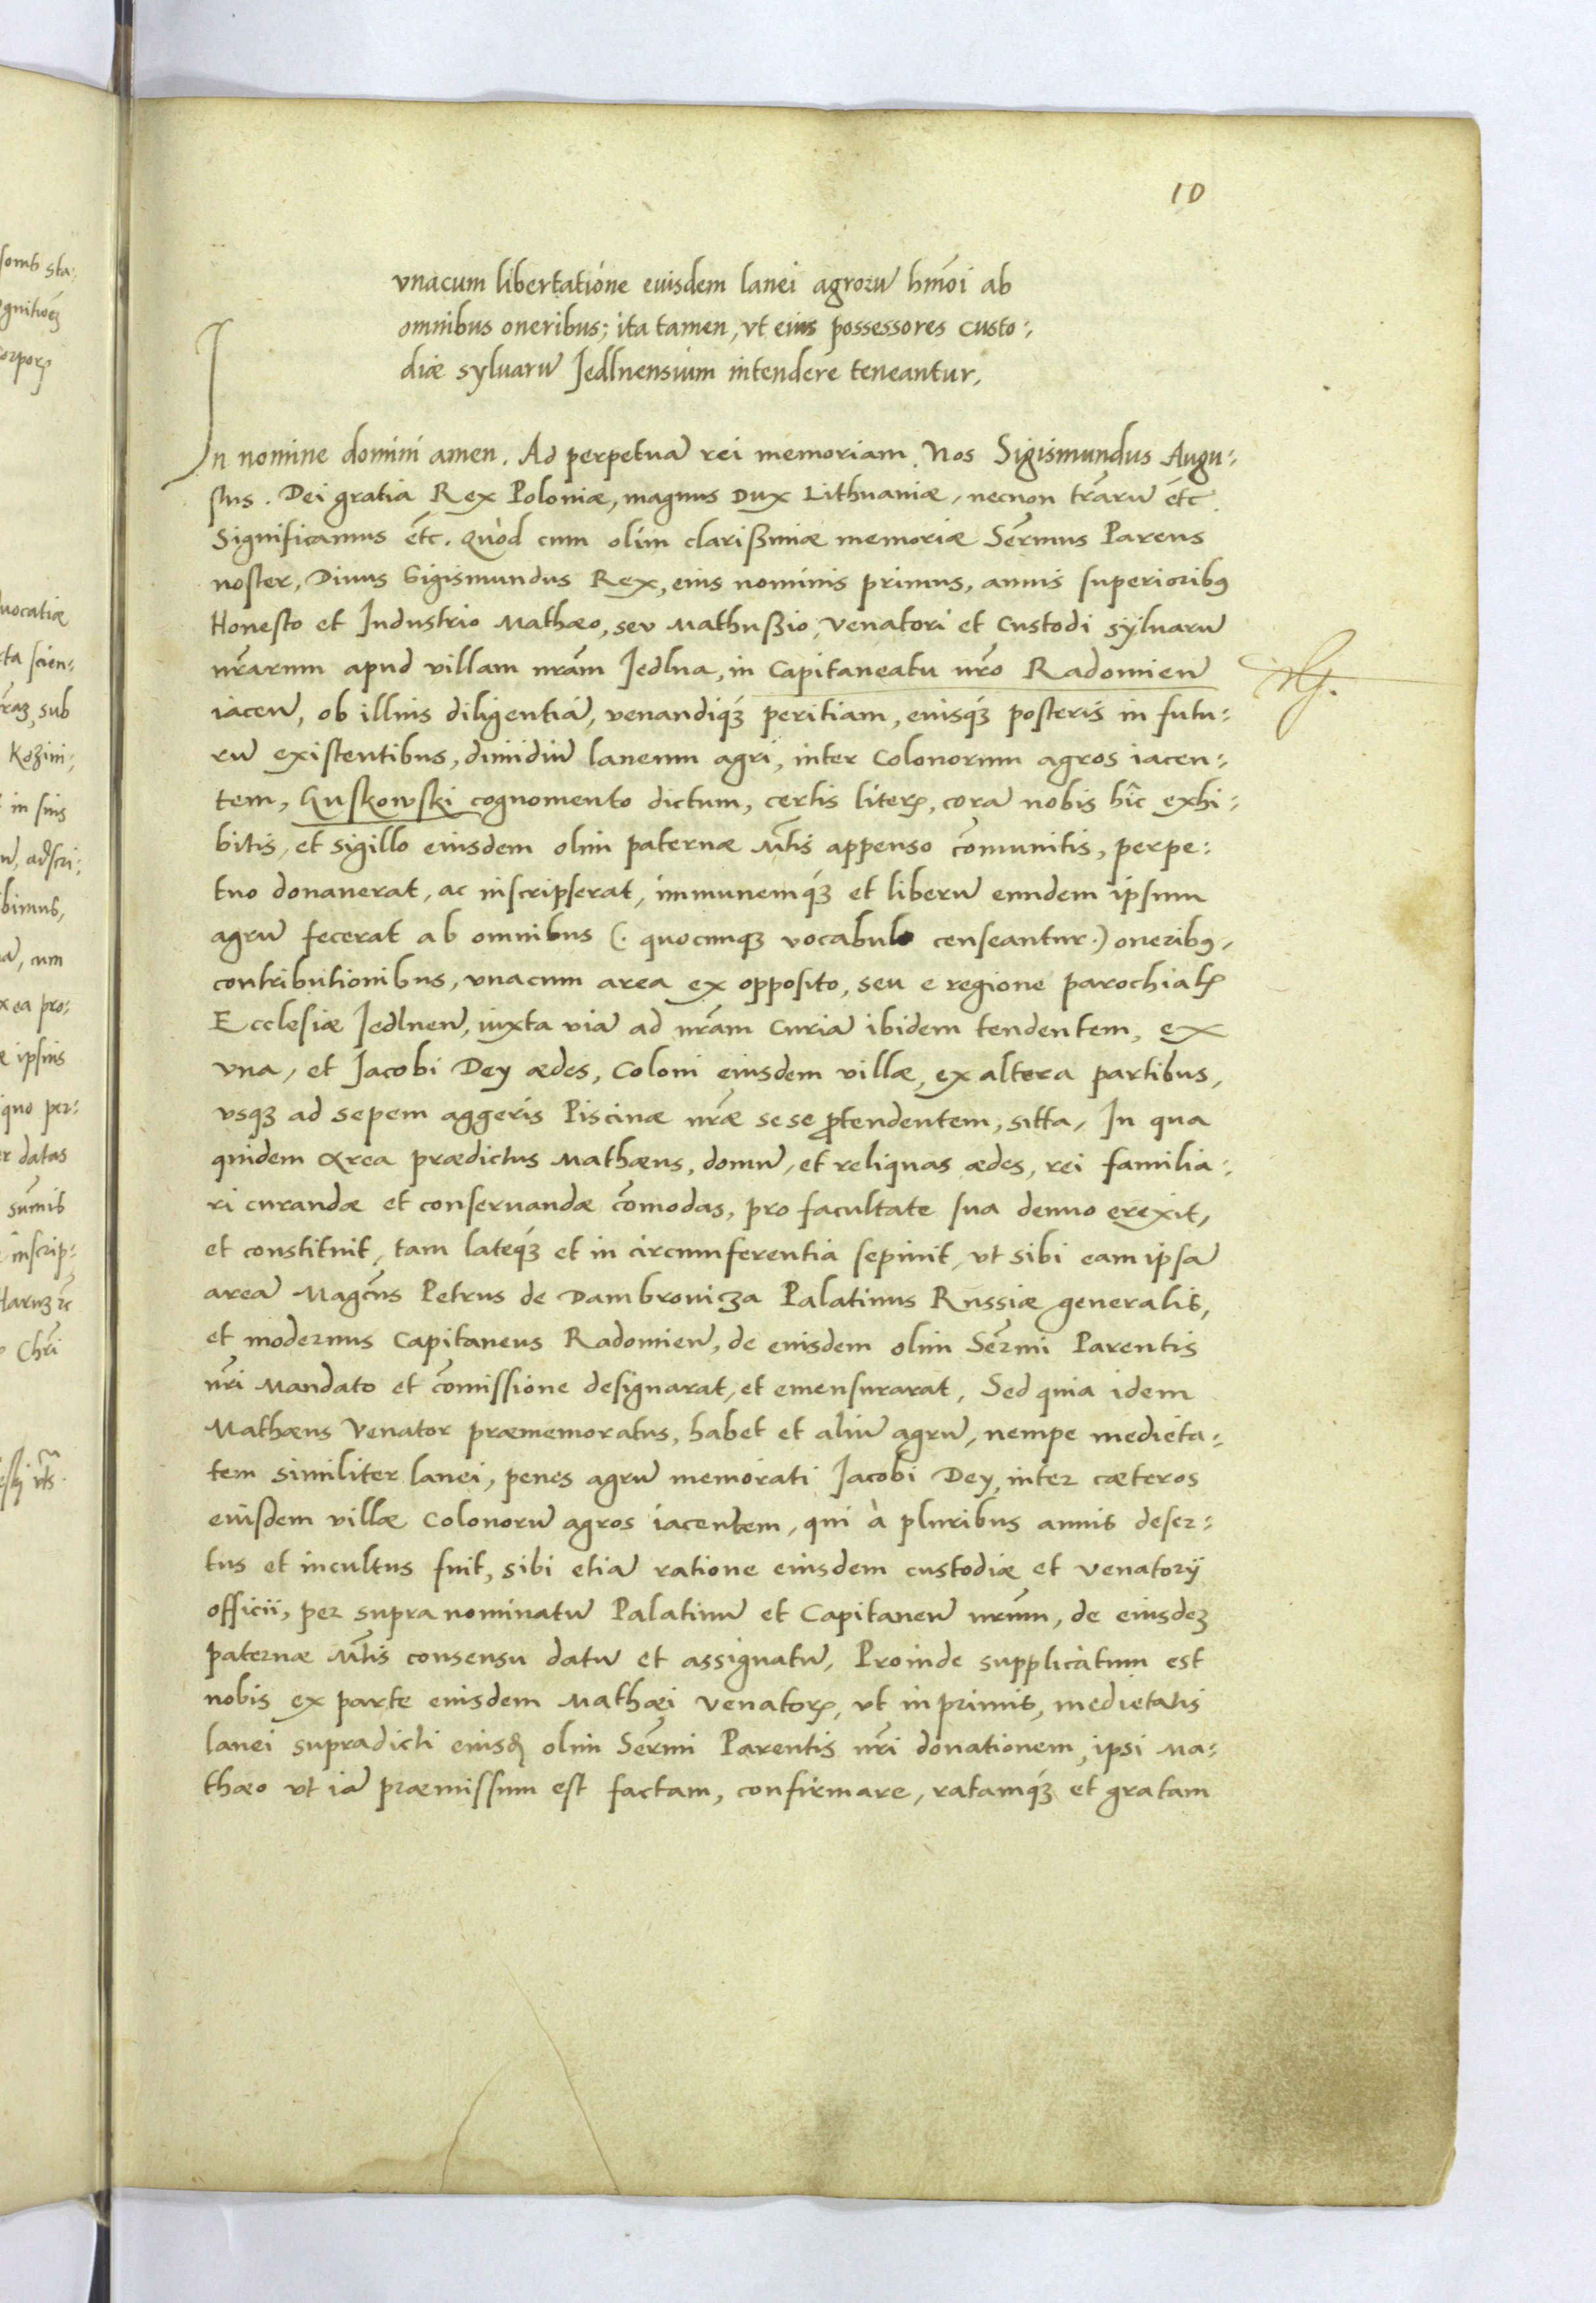 10
vnacum libertatione euisdem lanei agrorū hm̄oi ab
omnibus oneribus; ita tamen, vt eius possessores custo:
diæ syluarū Jedlnensium intendere teneantur.
In nomine domini amen. Ad perpetuā rei memoriam. Nos Sigismundus Augu:
stus. Dei gratia Rex Poloniæ, magnus Dux Lithuaniæ, necnon tr̄arū etc̄.
Significamus etc̄. Quòd cum olim clarißimæ memoriæ Ser̄mus Parens
noster, Diuus Sigismundus Rex, eius nominis primus, annis superioribꝰ
Honesto et Industrio Mathæo, seu Mathußio, Venatori et Custodi syluarū
nr̄arum apud villam nrām Jedlna, in Capitaneatu nr̄o Radomien̄
iacen̄, ob illius diligentiā, venandiqꝫ peritiam, eiusqꝫ posteris in futu:
rū existentibus, dimidiū laneum agri, inter Colonorum agros iacen:
tem, Guskowski cognomento dictum, certis literꝭ, corā nobis hîc exhi:
bitis, et sigillo eiusdem olim paternæ Mt̄is appenso com̄unitis, perpe:
tuo donauerat, ac inscripserat, immunemqꝫ et liberū eundem ipsum
agrū fecerat ab omnibus (. quocunqꝫ vocabulo censeantur.) oneribꝰ,
contributionibus, vnacum area ex opposito, seu e regione parochialꝭ
Ecclesiæ Jedlnen̄, iuxta viā ad nrām Curiā ibidem tendentem, ex
vna, et Jacobi Dey ædes, Coloni eiusdem villæ, ex altera partibus,
vsqꝫ ad sepem aggeris Piscinæ nr̄æ sese ꝓtendentem, sitta, In qua
quidem Area prædictus Mathæus, domū, et reliquas ædes, rei familia:
ri curandæ et conseruandæ com̄odas, pro facultate sua denuo erexit,
et constituit, tam lateqꝫ et in circumferentia sepiuit, vt sibi eam ipsā
areā Magc̄us Petrus de Dambrouicza Palatinus Russiæ generalis,
et modernus Capitaneus Radomien̄, de eiusdem olim Ser̄mi Parentis
nr̄i Mandato et com̄issione designarat, et emensurarat, Sed quia idem
Mathæus Venator præmemoratus, habet et aliū agrū, nempe medieta:
tem similiter lanei, penes agrū memorati Jacobi Dey, inter cæteros
euisdem villæ Colonorū agros iacentem, qui à pluribus annis deser:
tus et incultus fuit, sibi etiā ratione eiusdem custodiæ et venatorij
officii, per supra nominatū Palatinū et Capitaneū nrūm, de eiusdeꝫ
paternæ Mt̄is consensu datū et assignatū, Proinde supplicatum est
nobis ex parte eiusdem Mathæi Venatorꝭ, vt inprimis, medietatis
lanei supradicti eiusꝺ olim Ser̄mi Parentis nr̄i donationem, ipsi Ma:
thæo vt iā præmissum est factam, confirmare, ratamqꝫ et gratam